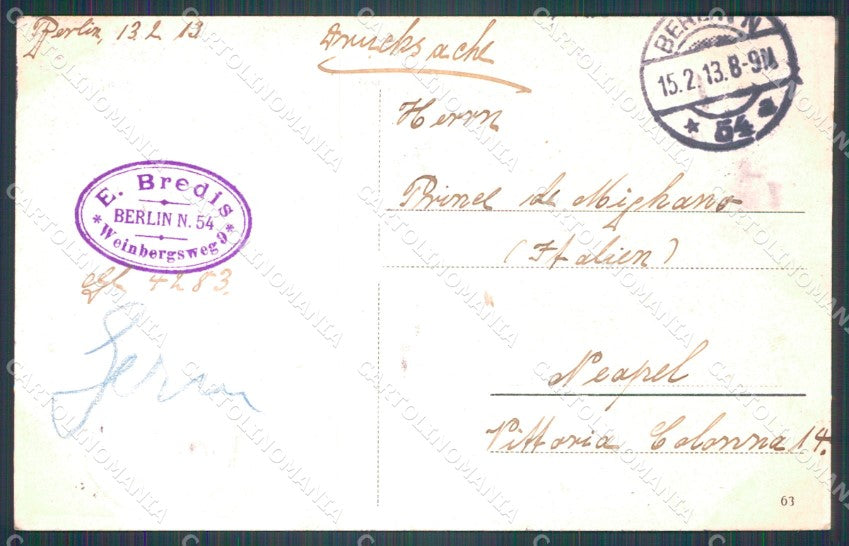 Berlin, 13.2.13
Drucksache
BERLIN N.
15.2.13.8-9N.
* 54 a
Herrn
Prince de Mighano
(Italien)
Neapel
Vittoria Colonna 14.
E. Bredis
BERLIN N. 54
* Weinbergsweg 9 *
4283.
63
CARTOLINOMANIA